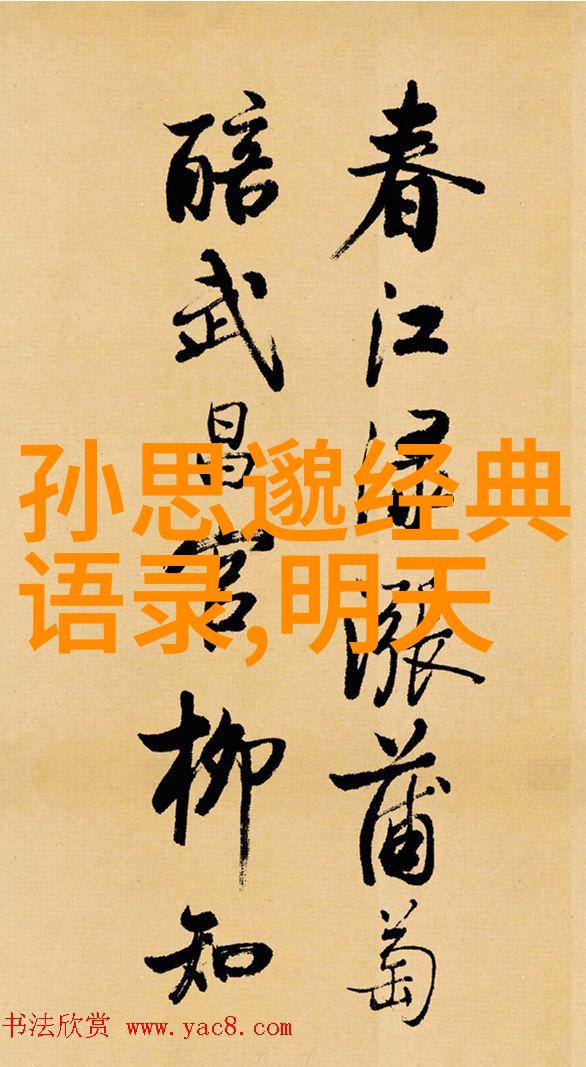 春江渌涨蒲萄
醅武昌官柳知
孙思邈经典
语录,明天
书法欣赏 www.yac8.com